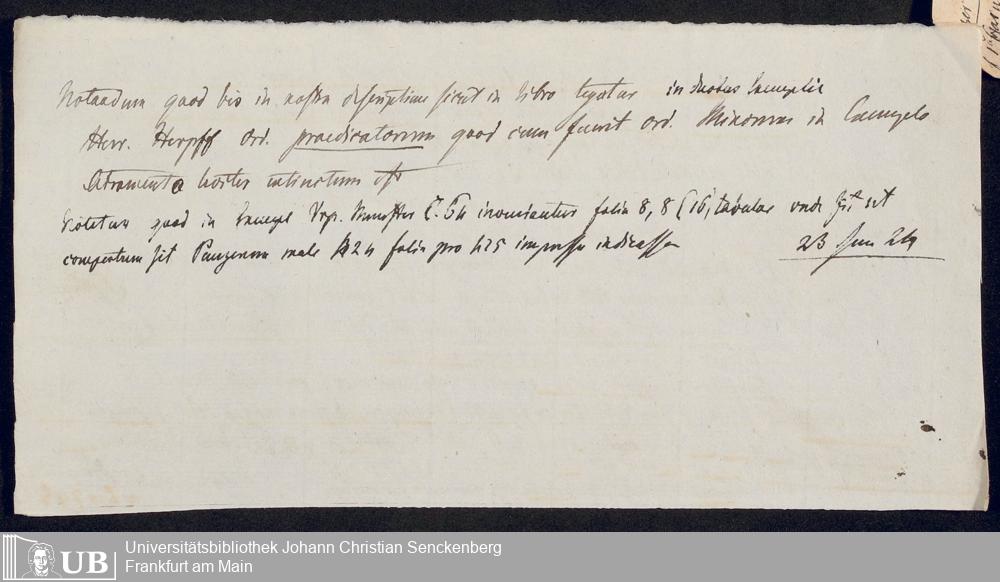 Notandum quod bis in nostra descriptione sicut in libro legatur in duobus Exemplis
Herr. Herpff Ord. praedicatorum quod cum fuerit Ord. Minorum in Exemplo
Atramento leviter extinctum est
Notetur quod in Exempl Typ. C. inveniantur folia 8, 8 (16, tabulae unde fit ut
compertum sit Panzerum male 424 folia pro 425 impressa indicasse 23 Jun 24
Universitätsbibliothek Johann Christian Senckenberg
Frankfurt am Main
UB